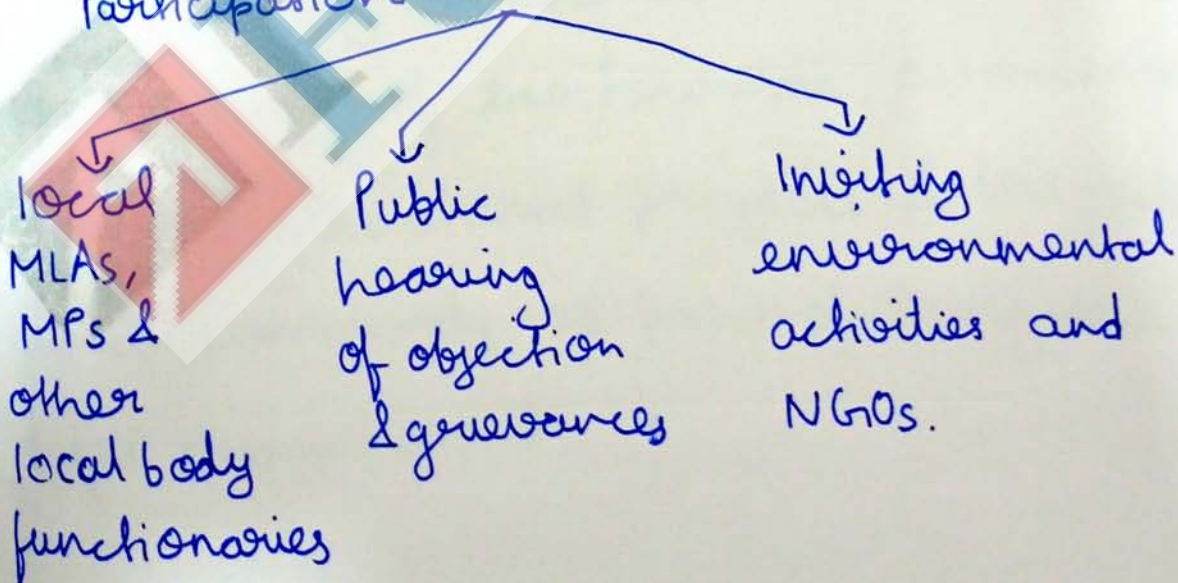 Participation
local
MLAs,
MPs &
other
local body
functionaries
Public
hearing
of objection
& grievances
Inviting
environmental
activities and
NGOs.